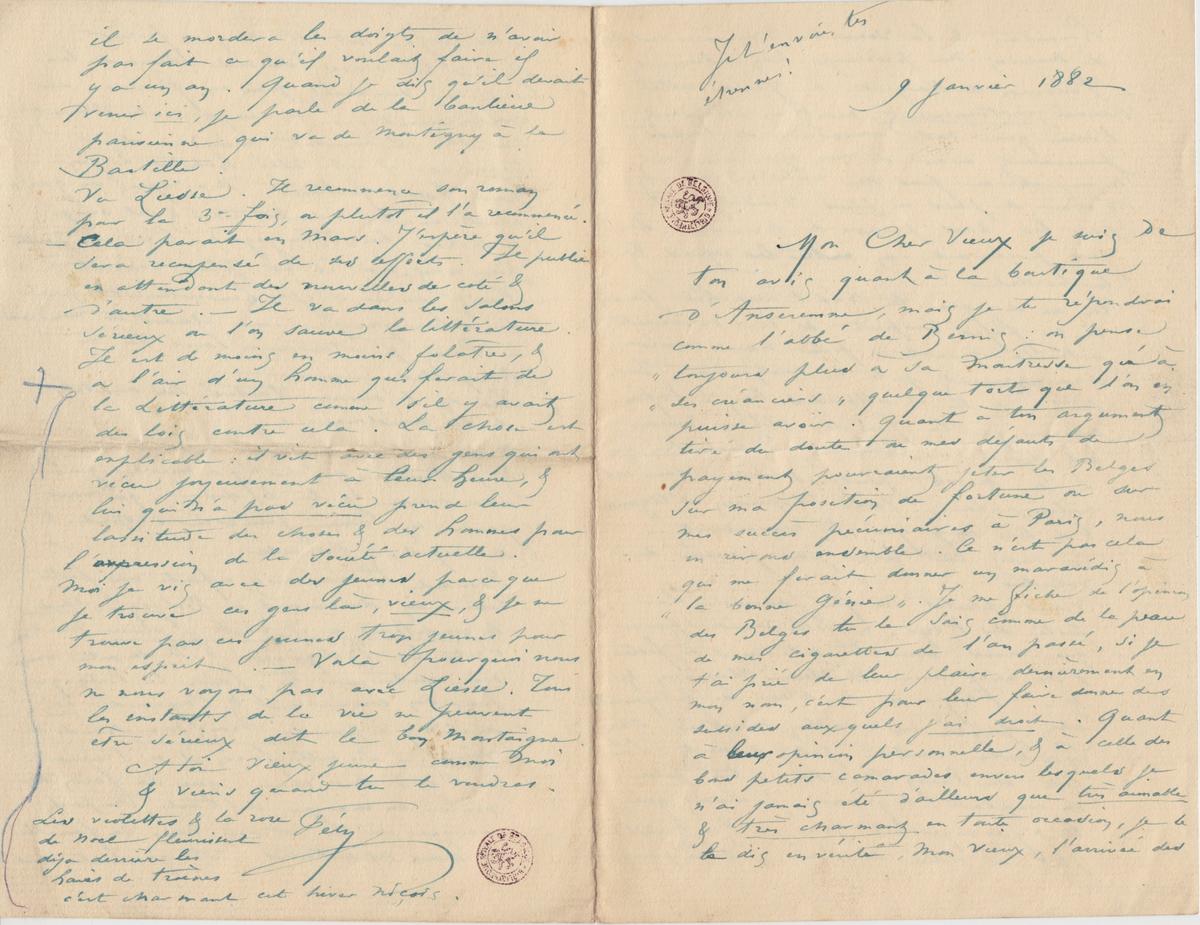 Je t'envoie tes
étrennes!
9 Janvier 1882
Mon Cher Vieux je suis De
ton avis quant à la boutique
D'Anseremme, mais je te répondrai
comme l'abbé de Bernis : on pense
" toujours plus à sa Maitresse qu'à
" ses créanciers " quelque tort que l'on en
puisse avoir. Quant à ton argument
tiré du doute ou mes défauts de
payement pourraient jeter les Belges
sur ma position de fortune ou sur
mes succès pécuniaires à Paris, nous
en rirons ensemble. Ce n'est pas cela
qui me ferait donner un maravédis à
" la bonne Génie ". Je me fiche de l'opinion
des Belges tu le sais comme de la peau
de mes cigarettes de l'an passé, si je
t'ai prié de leur plaire dernièrement en
mon nom, c'est pour leur faire donner des
subsides auxquels j'ai droit. Quant
à leur opinion personnelle, & à celle des
bons petits camarades envers lesquels je
n'ai jamais été d'ailleurs que très aimable
& très charmant en toute occasion, je te
le dis en vérité, mon vieux, l'arrivée des
il se mordera les doigts de n'avoir
pas fait ce qu'il voulait faire il
y a un an. Quand je dis qu'il devait
venir ici, je parle de la banlieue
parisienne qui va de Montigny à la
Bastille.
Vu Liesse. Il recommence son roman
pour la 3me fois, ou plutôt il l'a recommencé.
— Cela parait en Mars. J'espère qu'il
sera recompensé de ses efforts. Il publie
en attendant des nouvelles de coté &
d'autre. — Il va dans les salons
sérieux où l'on sauve la littérature.
Il est de moins en moins folâtre, &
a l'air d'un homme qui ferait de
la Littérature comme s'il y avait
des lois contre cela. La chose est
explicable : il vit avec des gens qui ont
vécu joyeusement à leur heure, &
lui qui n'a pas vécu prend leur
lassitude des choses & des hommes pour
l'expression de la Société actuelle.
Moi je vis avec des jeunes parce que
je trouve ces gens là, vieux, & je ne
trouve pas ces jeunes trop jeunes pour
mon esprit. — Voilà pourquoi nous
ne nous voyons pas avec Liesse. Tous
les instants de la vie ne peuvent
être sérieux dit le bon Montaigne
A toi vieux jeune comme moi
& viens quand tu le voudras.
Fély
Les violettes & la rose
de Noel fleurissent
déja derrière les
haies de troènes
c'est charmant cet hiver Niçois.